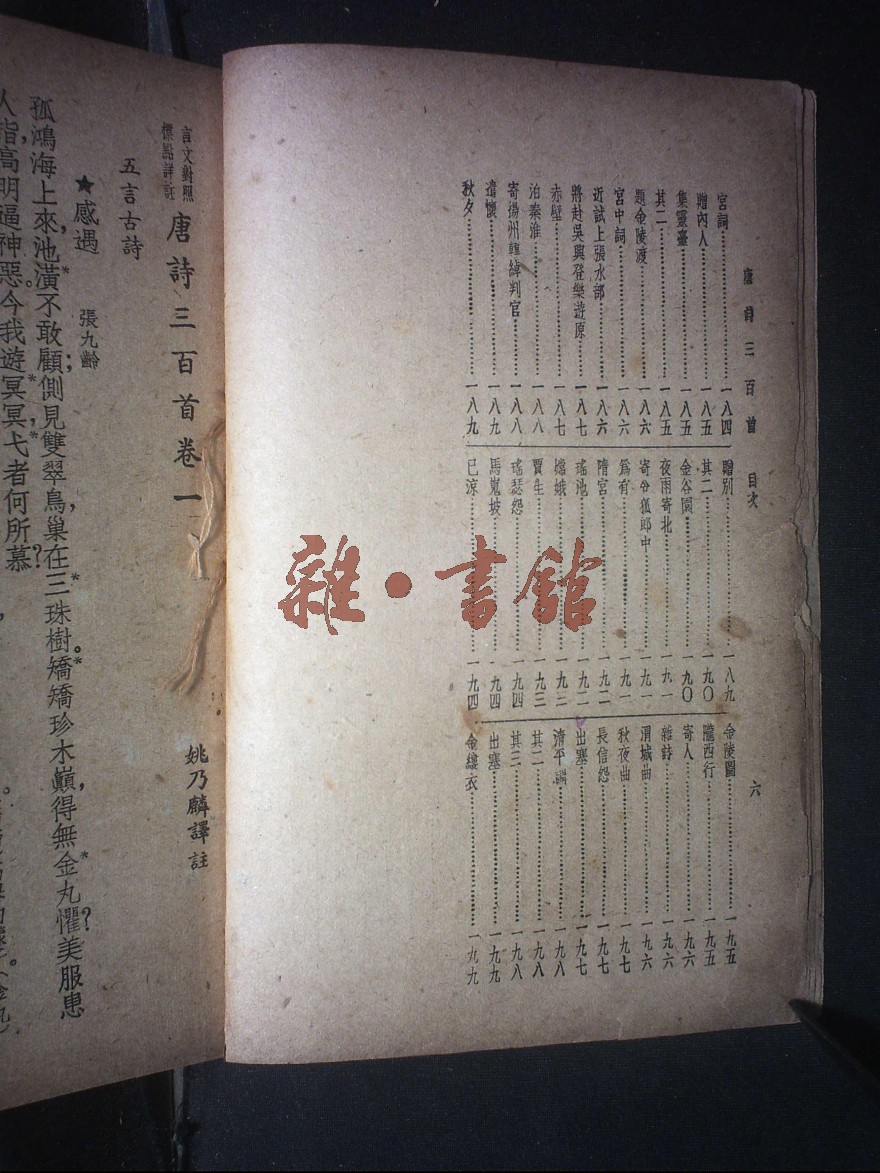 唐詩三百首 目次 六
宮詞……一八四
贈內人……一八五
集靈臺……一八五
其二……一八五
題金陵渡……一八六
宮中詞……一八六
近試上張水部……一八六
將赴吳興登樂遊原……一八七
赤壁……一八七
泊秦淮……一八八
寄揚州韓綽判官……一八八
遣懷……一八九
秋夕……一八九
贈別……一八九
其二……一九〇
金谷園……一九〇
夜雨寄北……一九一
寄令狐郎中……一九一
爲有……一九一
隋宮……一九二
瑤池……一九二
嫦娥……一九三
賈生……一九三
瑤瑟怨……一九四
馬嵬坡……一九四
已涼……一九四
金陵圖……一九五
隴西行……一九五
寄人……一九六
雜詩……一九六
渭城曲……一九六
秋夜曲……一九七
長信怨……一九七
出塞……一九七
清平調……一九八
其二……一九八
其三……一九八
出塞……一九九
金縷衣……一九九
雜·書館
言文對照
標點詳註
唐詩三百首卷一
姚乃麟譯註
五言古詩
★感遇 張九齡
孤鴻海上來,池潢*不敢顧;側見雙翠鳥,巢在三*珠樹。矯*矯珍木巔,得無金*丸懼?美服患
人指,高明逼神惡。今我遊冥*冥,弋*者何所慕?